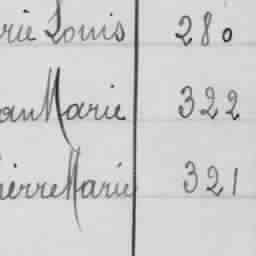 rie Louis 280
an Marie 322
ierre Marie 321